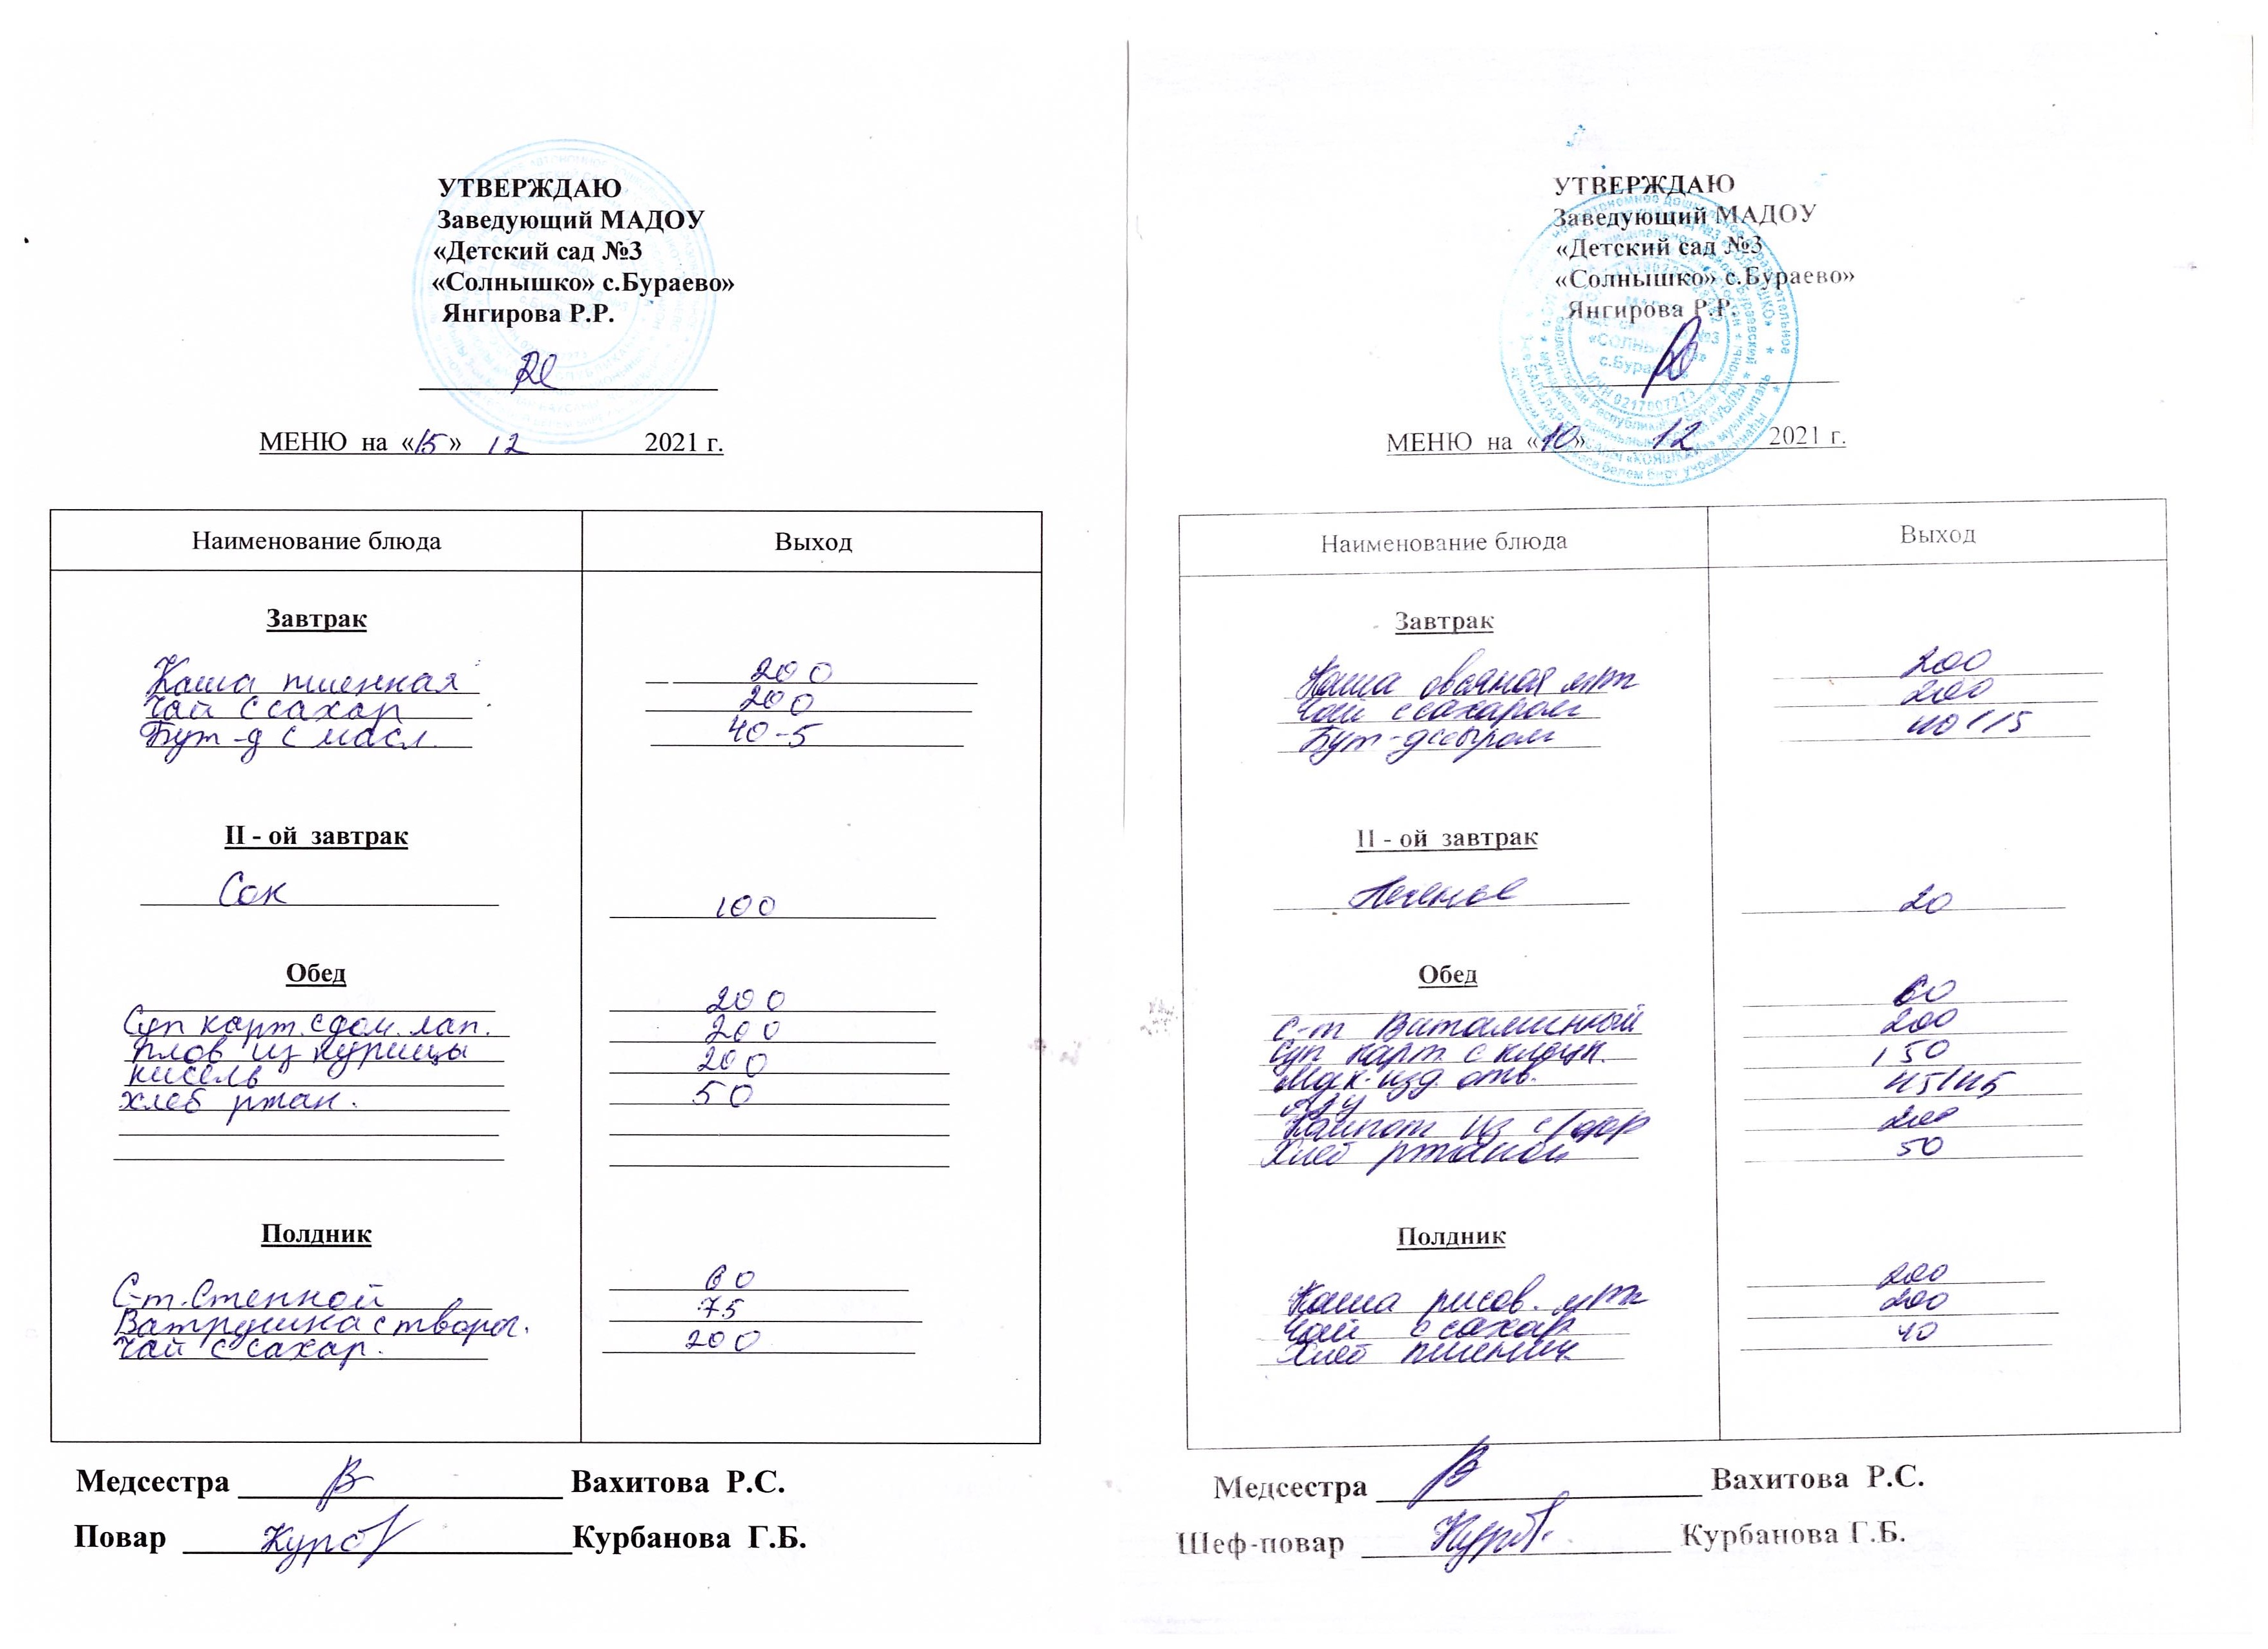 УТВЕРЖДАЮ
Заведующий МАДОУ
«Детский сад №3
«Солнышко» с.Бураево»
Янгирова Р.Р.
МЕНЮ на «15» 12 2021 г.
Наименование блюда Выход
Завтрак
Каша пшенная 200
Чай с сахар 200
Бут-д с масл. 40-5
II - ой завтрак
Сок 100
Обед
Суп карт. с дом. лап. 200
плов из курицы 200
кисель 200
хлеб ржан. 50
Полдник
С-т. Степной 60
Ватрушка с творог. 75
Чай с сахар. 200
Медсестра Вахитова Р.С.
Повар Курбанова Г.Б.
УТВЕРЖДАЮ
Заведующий МАДОУ
«Детский сад №3
«Солнышко» с.Бураево»
Янгирова Р.Р.
МЕНЮ на «10» 12 2021 г.
Наименование блюда Выход
Завтрак
Каша овсяная 200
Чай с сахаром 200
Бут-д с сыром 40/15
II - ой завтрак
Печенье 20
Обед
С-т Витаминный 60
Суп карт с клёцк. 200
Мак. изд. отв. 150
Азу 45/45
Компот из с/фр 200
Хлеб ржаной 50
Полдник
Каша рисов. 200
Чай с сахар 200
Хлеб пшенич 40
Медсестра Вахитова Р.С.
Шеф-повар Курбанова Г.Б.